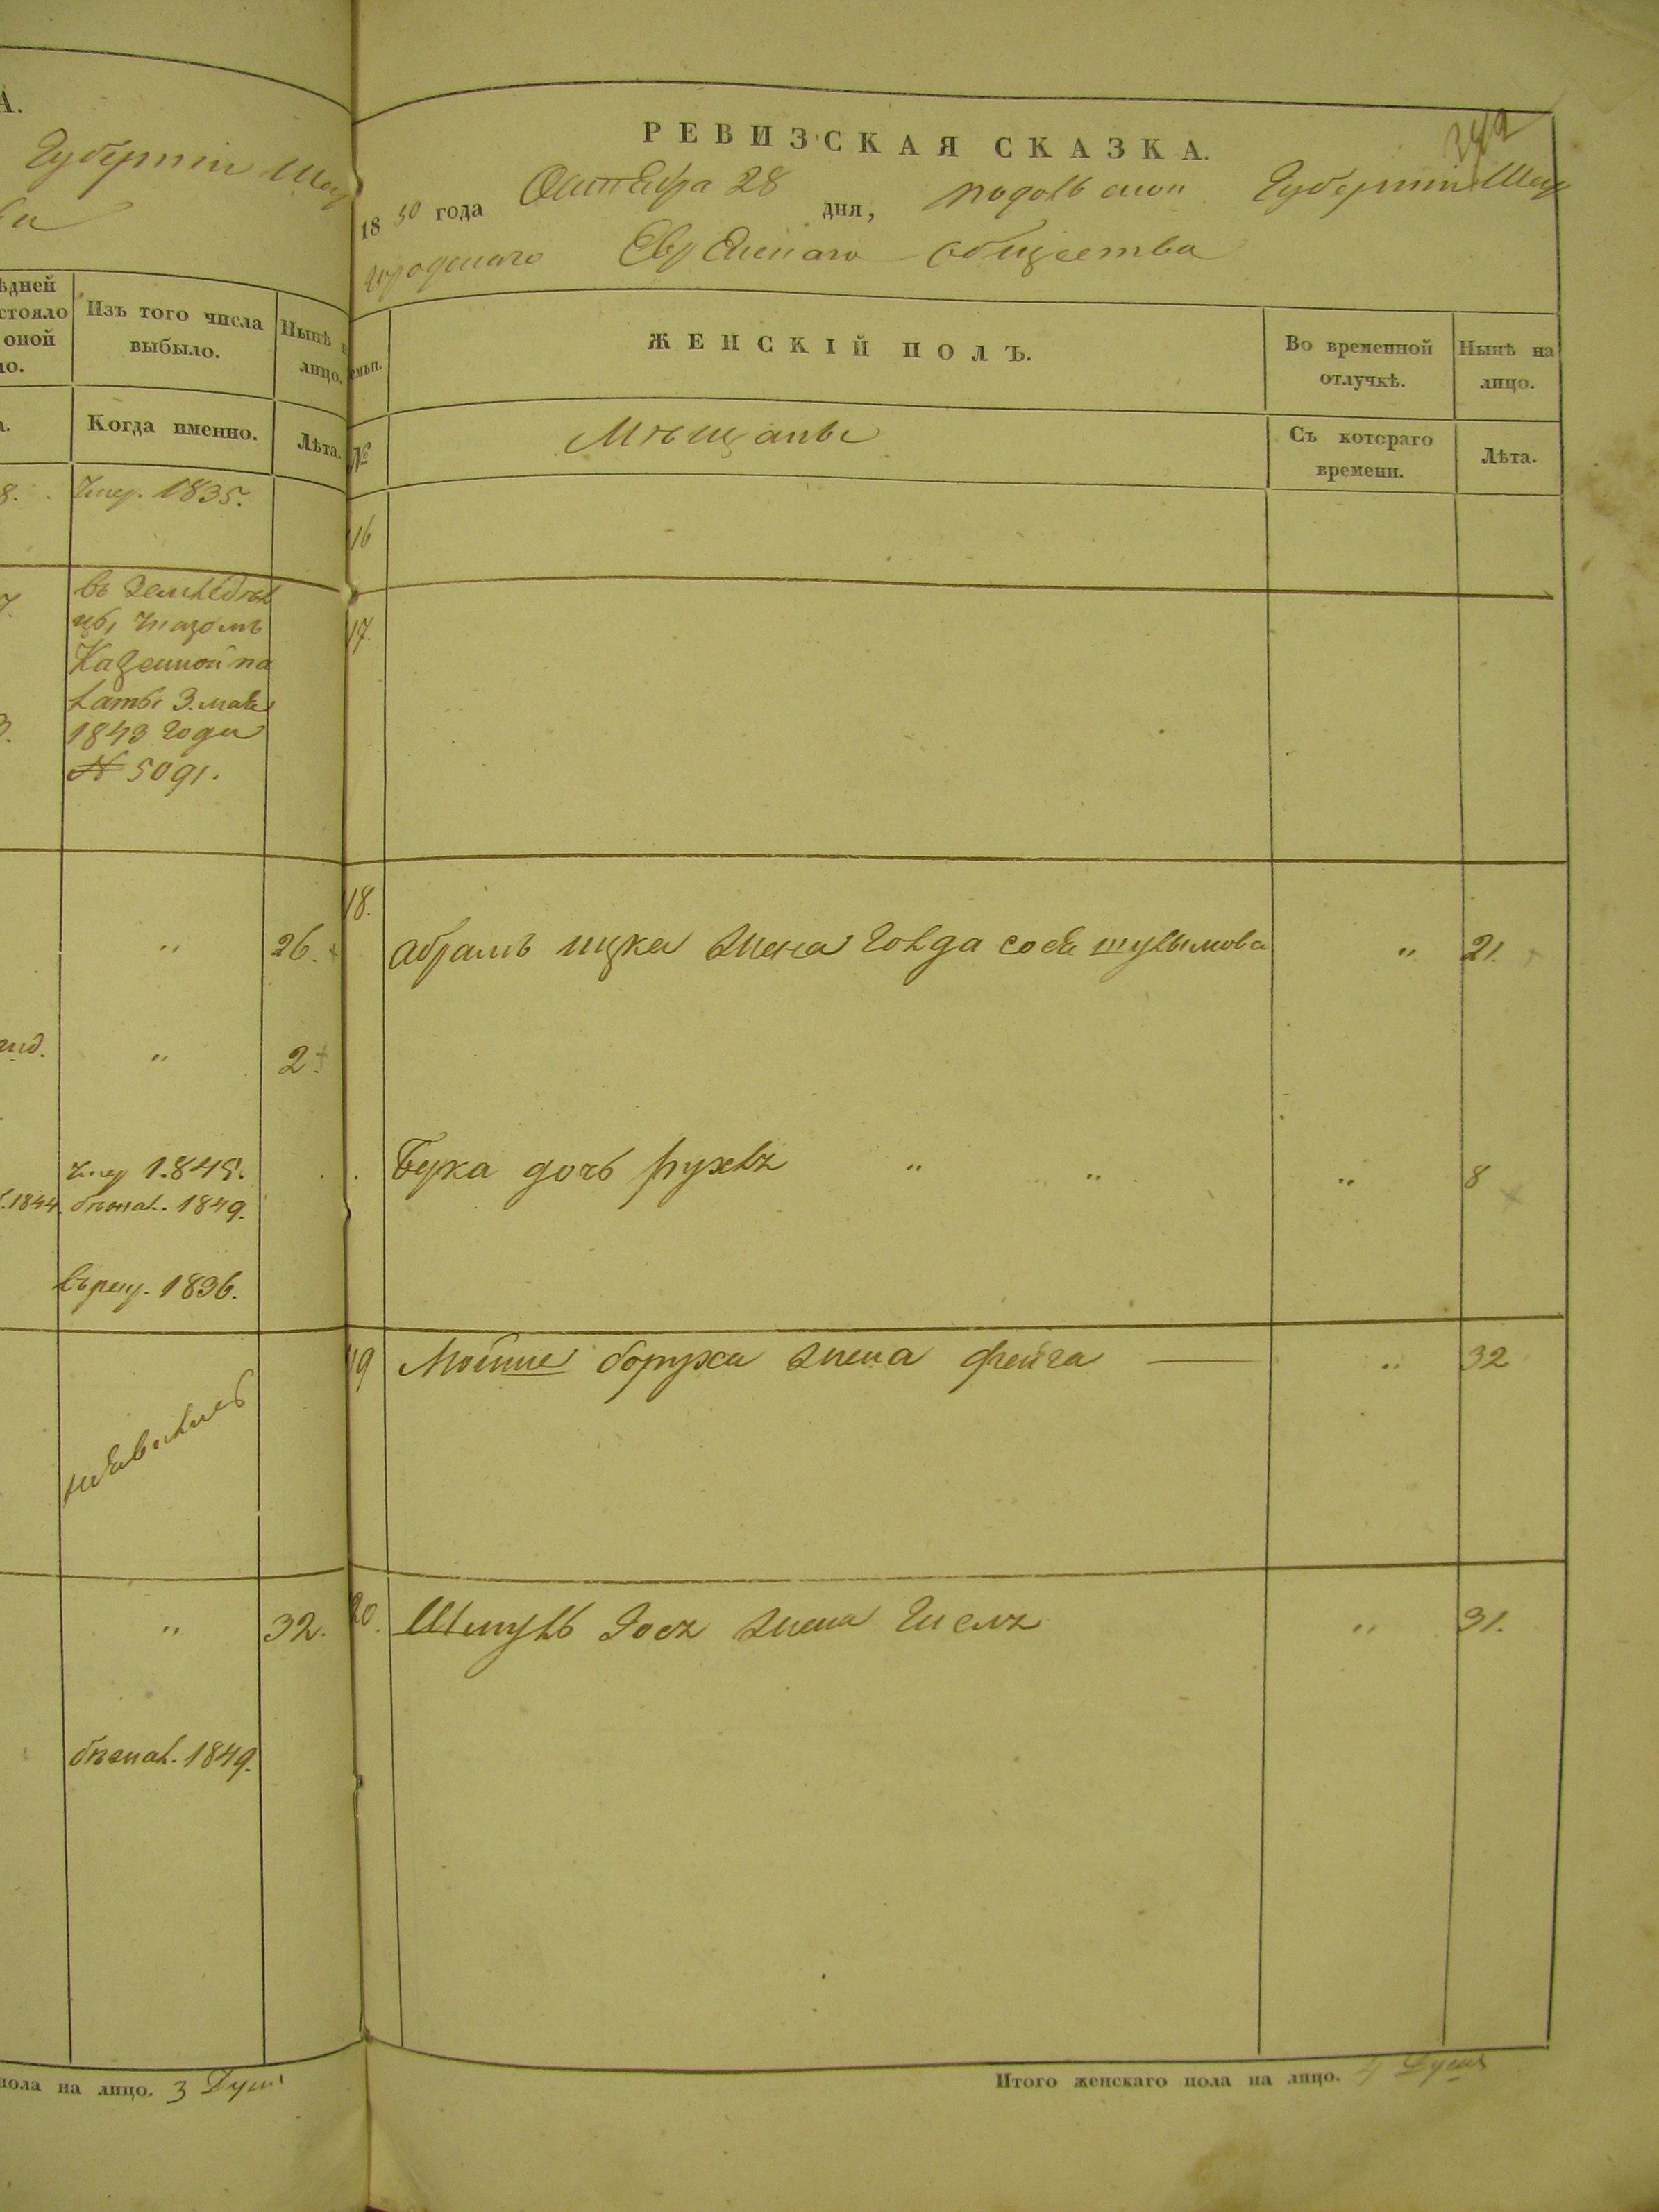 А.
Губернiи Шар
ва
ѣдней
стояло
оной
ло.
Изъ того числа
выбыло.
Нынѣ н
лицо.
а.
Когда именно.
Лѣта.
8.
умер. 1835.
7.
въ Земледѣл
цы, указомъ
Казенной па
латы 3. мая
3.
1843 года
№ 5091.
" 26.
" 2.
умер 1845.
.1844. бѣжал. 1849.
въ рекр. 1836.
неявились
" 32.
бѣжал. 1849.
пола на лицо. 3 Души
342
РЕВИЗСКАЯ СКАЗКА.
1850 года Октября 28 дня, Подольской Губернiи Шар
городскаго Еврейскаго общества
семьи.
ЖЕНСКIЙ ПОЛЪ.
Во временной
отлучкѣ.
Нынѣ на
лицо.
№
Мѣщане
Съ котораго
времени.
Лѣта.
16
17.
18.
Абрамъ ицка жена Голда сося шулимова " 21.
Бука дочь рухля " " " 8
19 Мойше боруха жена фейга — " 32
20. Шмуль Iося жена " 31.
Итого женскаго пола на лицо. 4 Души